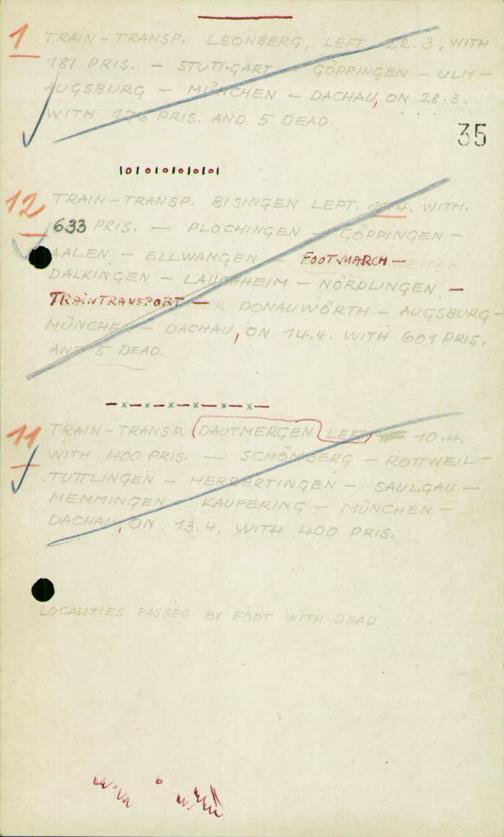 1 TRAIN-TRANSP. LEONBERG, LEFT 22.3, WITH
181 PRIS. — STUTTGART — GÖPPINGEN — ULM —
AUGSBURG — MÜNCHEN — DACHAU, ON 28.3.
WITH 176 PRIS. AND 5 DEAD.
35
12 TRAIN-TRANSP. BISINGEN LEFT. 4. WITH.
633 PRIS. — PLOCHINGEN — GÖPPINGEN —
AALEN — ELLWANGEN — FOOTMARCH —
DALKINGEN — LAUCHHEIM — NÖRDLINGEN —
TRAINTRANSPORT — DONAUWÖRTH — AUGSBURG —
MÜNCHEN — DACHAU, ON 14.4. WITH 601 PRIS.
AND 5 DEAD.
11 TRAIN-TRANSP. DAUTMERGEN LEFT 10.4.
WITH 400 PRIS. — SCHÖMBERG — ROTTWEIL —
TUTTLINGEN — HERBERTINGEN — SAULGAU —
MEMMINGEN — KAUFERING — MÜNCHEN —
DACHAU, ON 13.4. WITH 400 PRIS.
LOCALITIES PASSED BY FOOT WITH DEAD